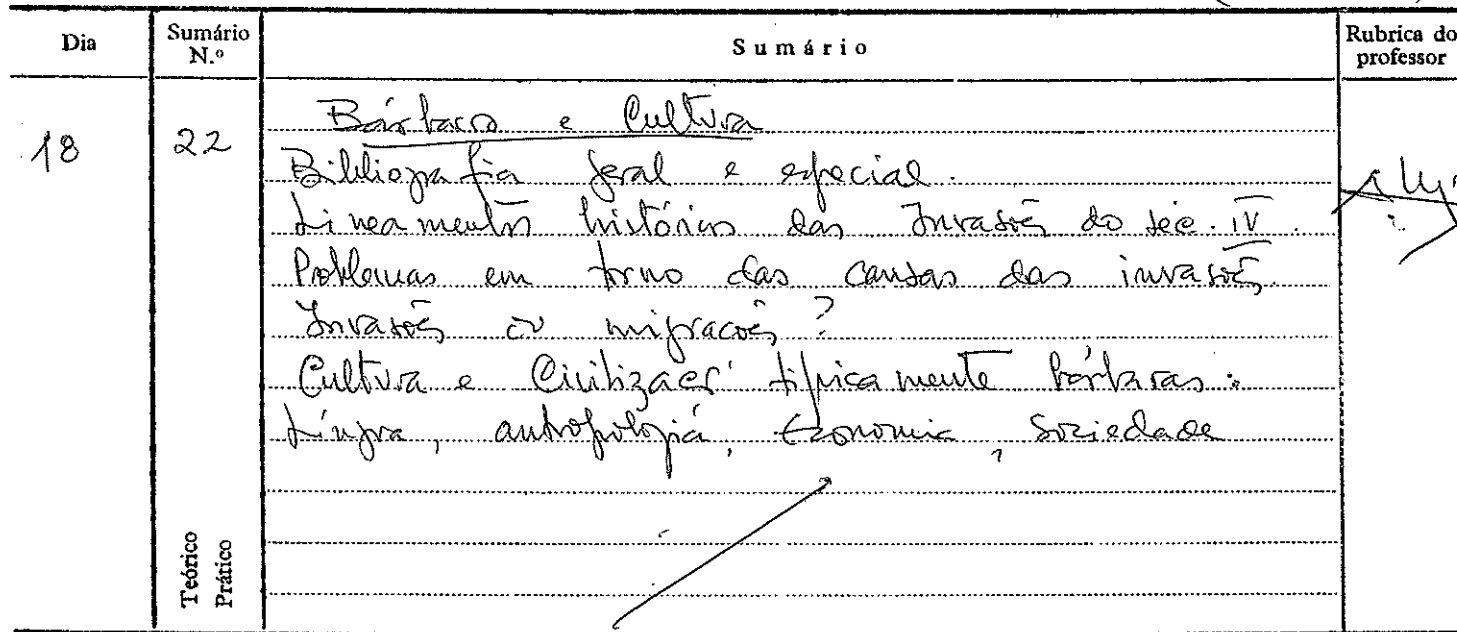 Dia
Sumário N.º
Sumário
Rubrica do professor
18
22
Bárbaros e Cultura
Bibliografia geral e especial.
Lineamentos históricos das Invasões do séc. IV.
Problemas em torno das causas das invasões.
Invasões ou migrações?
Cultura e Civilização tipicamente bárbaras:
Língua, antropologia, Economia, Sociedade
Teórico
Prático